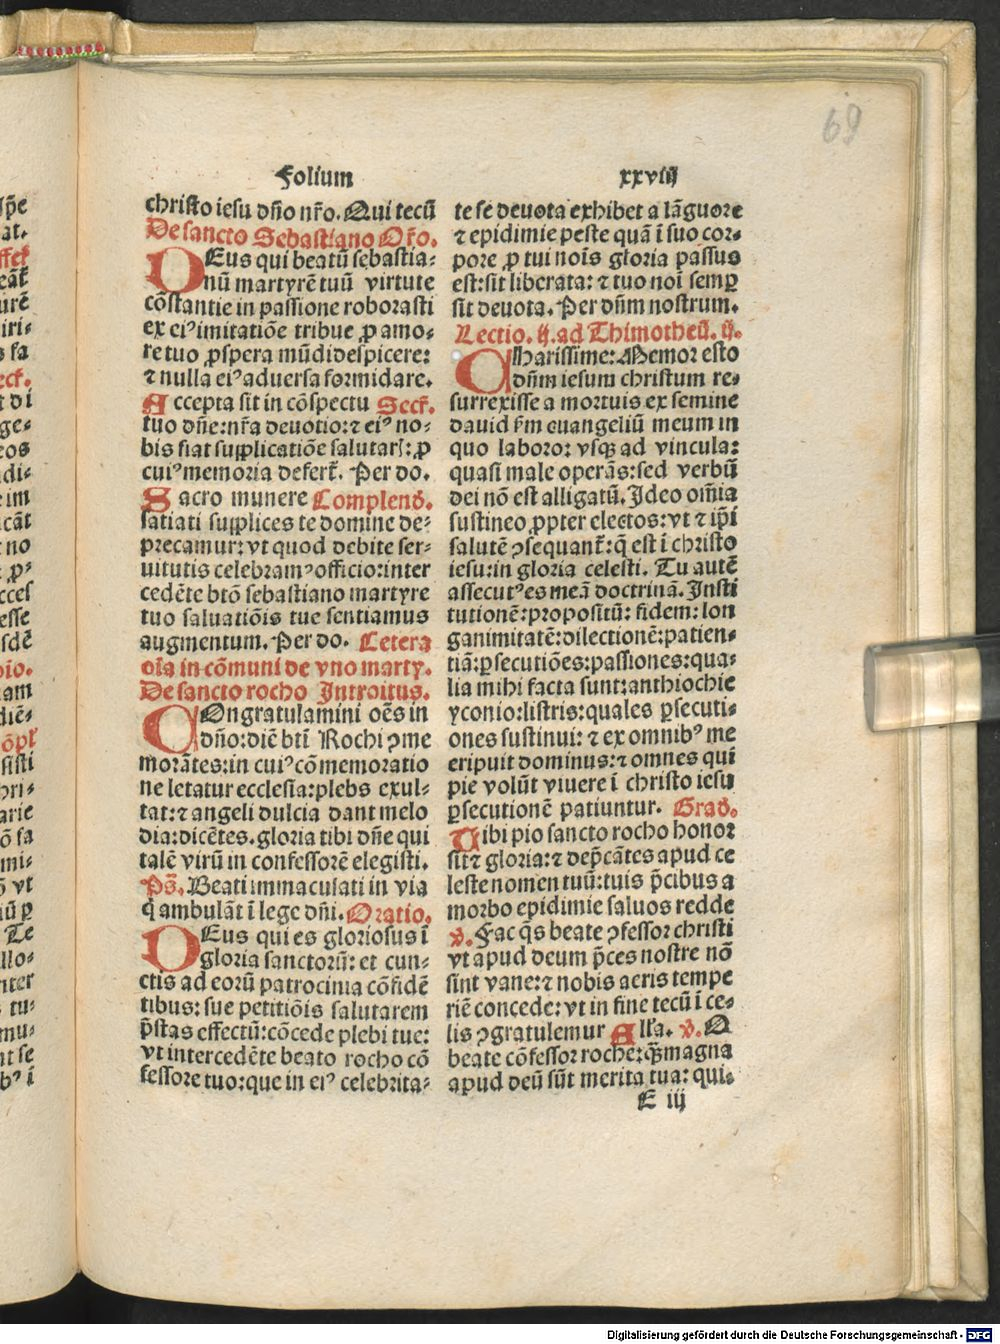 69
Folium xxviij
christo iesu dño nr̃o. Qui tecũ
De sancto Sebastiano Or̃o.
DEus qui beatũ sebastia⸗
nũ martyrẽ tuũ virtute
cõstantie in passione roborasti
ex eiꝰ imitatiõe tribue ꝓ amo⸗
re tuo ꝓspera mũdi despicere:
⁊ nulla eiꝰ aduersa formidare.
Accepta sit in cõspectu Secr̃.
tuo dñe: nr̃a deuotio: ⁊ eiꝰ no⸗
bis fiat supplicatiõe salutar̃: ꝓ
cuiꝰ memoria defert̃. Per do.
Sacro munere Complenð.
satiati supplices te domine de⸗
precamur: vt quod debite ser⸗
uitutis celebramꝰ officio: inter
cedẽte btõ sebastiano martyre
tuo saluatiõis tue sentiamus
augmentum. Per do. Cetera
oĩa in cõmuni de vno marty.
De sancto rocho Introitus.
COngratulamini oẽs in
dño: diẽ btĩ Rochi ꝯme
morãtes: in cuiꝰ cõmemoratio
ne letatur ecclesia: plebs exul⸗
tat: ⁊ angeli dulcia dant melo
dia: dicẽtes. gloria tibi dñe qui
talẽ virũ in confessorẽ elegisti.
Ps̃. Beati immaculati in via
q̃ ambulãt ĩ lege dñi. Oratio.
DEus qui es gloriosus ĩ
gloria sanctorũ: et cun⸗
ctis ad eorũ patrocinia cõfidẽ
tibus: sue petitiõis salutarem
p̃stas effectũ: cõcede plebi tue:
vt intercedẽte beato rocho cõ
fessore tuo: que in eiꝰ celebrita⸗
te se deuota exhibet a lãguore
⁊ epidimie peste quã ĩ suo cor⸗
pore ꝓ tui noĩs gloria passus
est: sit liberata: ⁊ tuo noĩ semꝑ
sit deuota. Per dñm nostrum.
Lectio. ij. ad Thimotheũ. ij.
CHarissime: Memor esto
dñm iesum christum re⸗
surrexisse a mortuis ex semine
dauid ẽm euangeliũ meum in
quo laboro: vsqꝫ ad vincula:
quasi male operãs: sed verbũ
dei nõ est alligatũ. Ideo om̃ia
sustineo ꝓpter electos: vt ⁊ ip̃i
salutẽ ꝯsequant̃: q̃ est ĩ christo
iesu: in gloria celesti. Tu autẽ
assecutꝰ es meã doctrinã. Insti
tutionẽ: propositũ: fidem: lon
ganimitatẽ: dilectionẽ: patien⸗
tiã: ꝑsecutiões: passiones: qua⸗
lia mihi facta sunt: anthiochie
yconio: listris: quales ꝑsecuti⸗
ones sustinui: ⁊ ex omnibꝰ me
eripuit dominus: ⁊ omnes qui
pie volũt viuere ĩ christo iesu
ꝑsecutionẽ patiuntur. Grað.
Tibi pio sancto rocho honor
sit ⁊ gloria: ⁊ dep̃cãtes apud ce
leste nomen tuũ: tuis p̃cibus a
morbo epidimie saluos redde
℣. Fac q̃s beate ꝯfessor christi
vt apud deum p̃ces nostre nõ
sint vane: ⁊ nobis aeris tempe
riẽ concede: vt in fine tecũ ĩ ce⸗
lis ꝯgratulemur Alr̃a. ℣. O
beate cõfessor roche: q̃ꝫ magna
apud deũ sũt merita tua: qui⸗
E iij
Digitalisierung gefördert durch die Deutsche Forschungsgemeinschaft - DFG